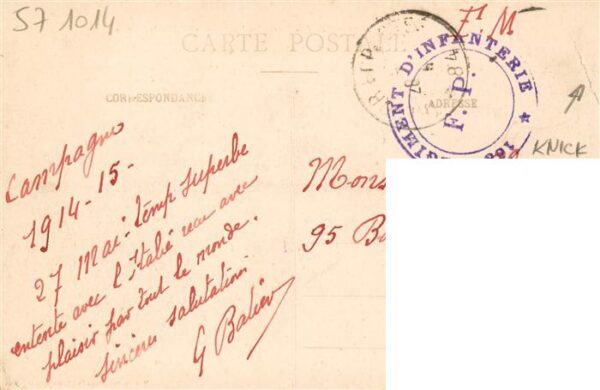 S7 1014
F. M
CARTE POSTALE
CORRESPONDANCE
ADRESSE
RÉGIMENT D'INFANTERIE ★
F. P.
KNICK
Campagne
1914-15-
27 Mai: temp superbe
entente avec l'Italie reçu avec
plaisir par tout le monde.
Sincères salutations
G Batier
Mons
95 B